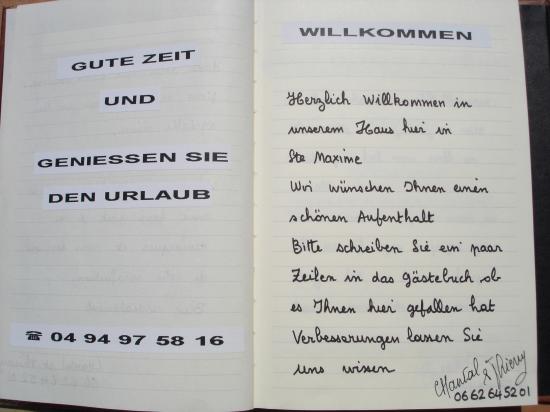 GUTE ZEIT
UND
GENIESSEN SIE
DEN URLAUB
☎ 04 94 97 58 16
WILLKOMMEN
Herzlich Willkommen in
unserem Haus hier in
Ste Maxime
Wir wünschen Ihnen einen
schönen Aufenthalt
Bitte schreiben Sie ein paar
Zeilen in das Gästebuch ob
es Ihnen hier gefallen hat
Verbesserungen lassen Sie
uns wissen
Chantal & Thierry
06 62 64 52 01